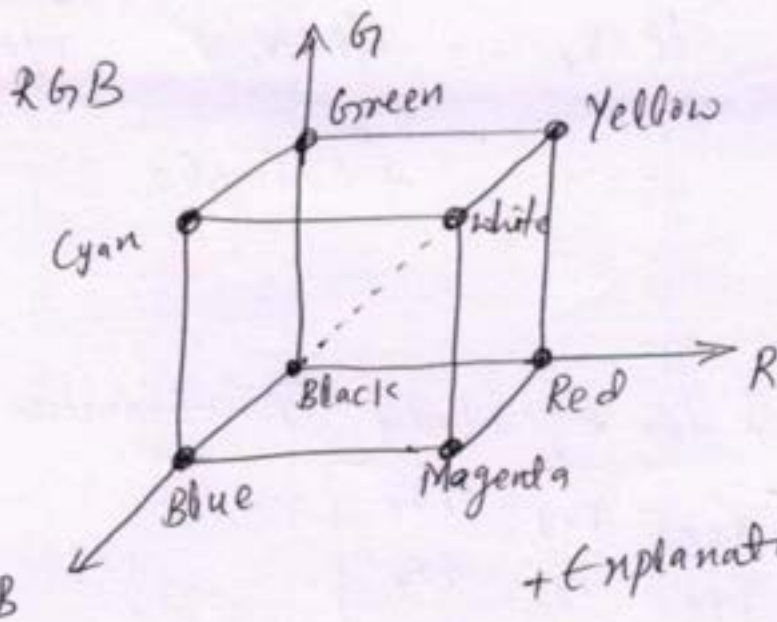 G
RGB
Green
Yellow
Cyan
White
Black
Red
R
Blue
Magenta
B